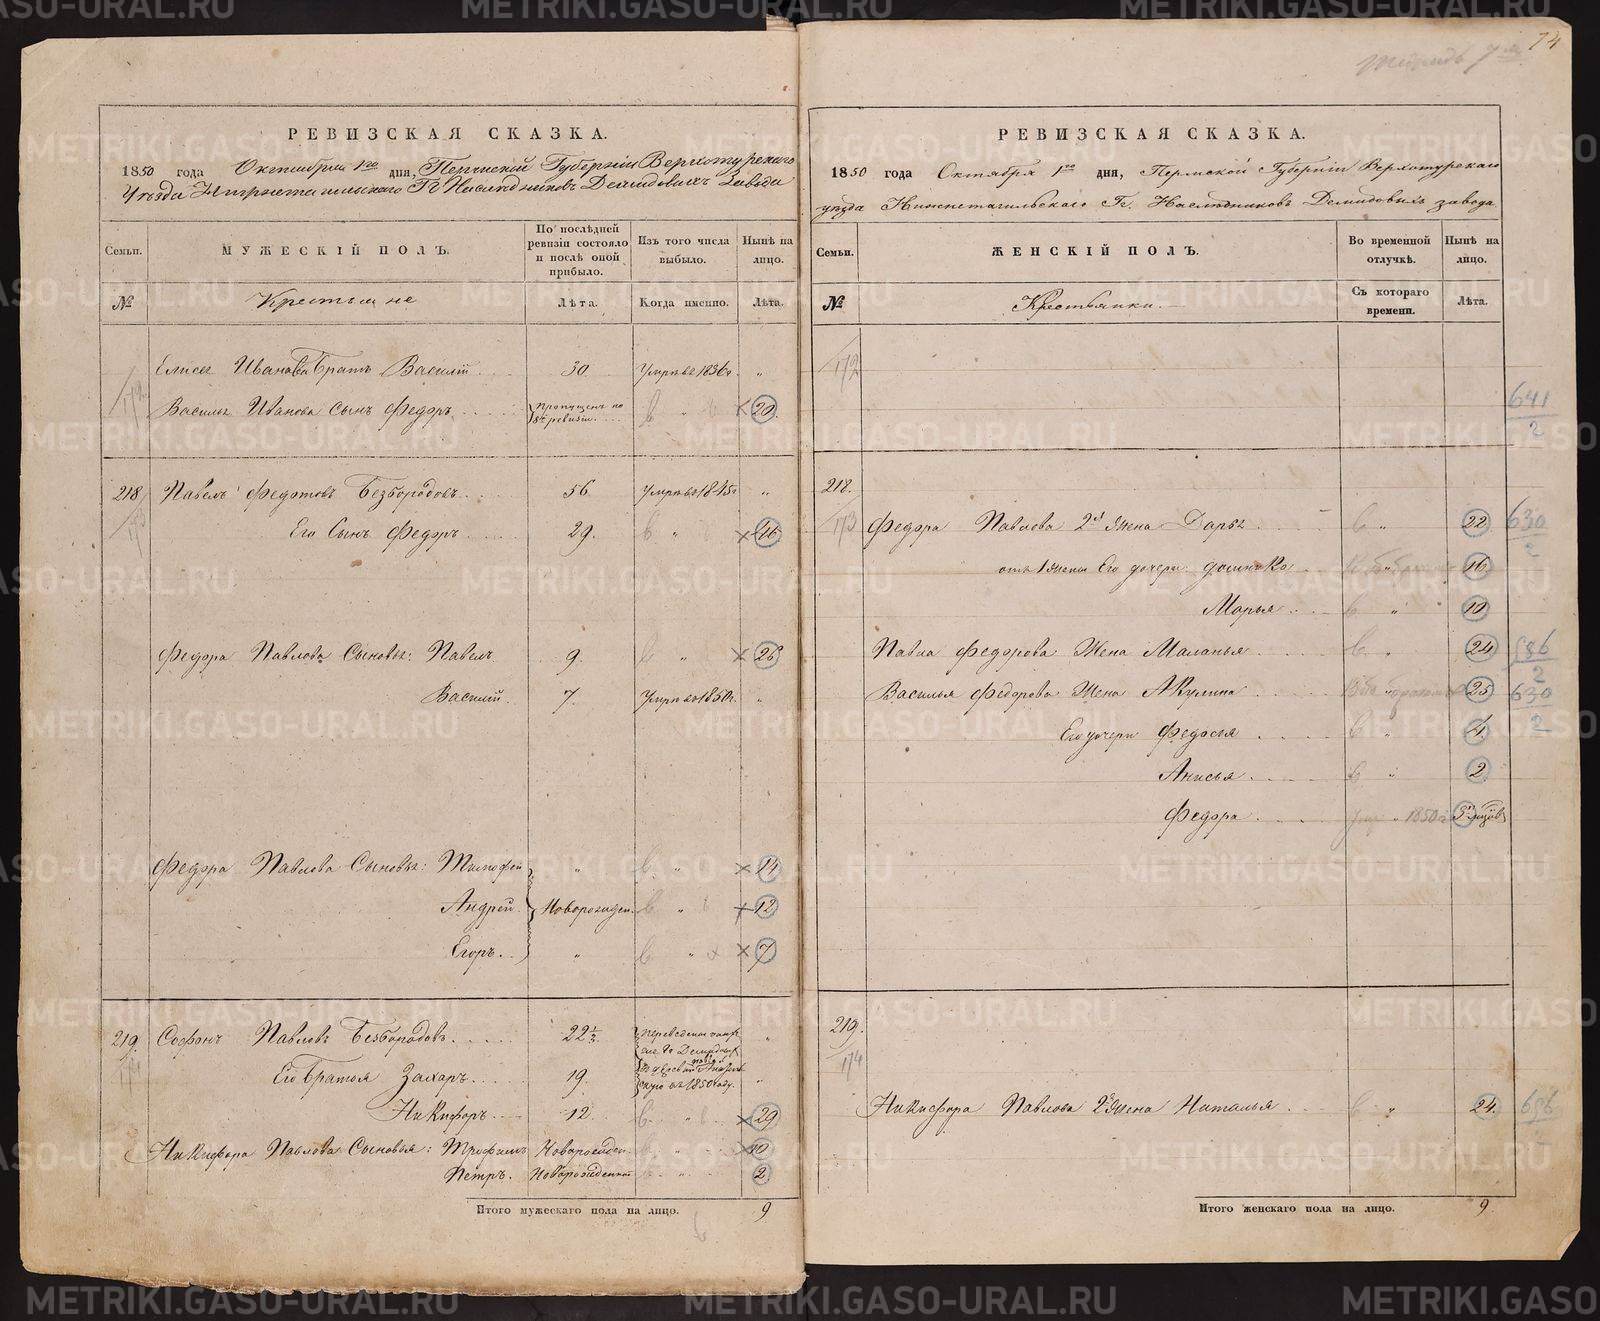 74
РЕВИЗСКАЯ СКАЗКА.
1850 года Октября 1го дня, Пермской Губернiи Верхотурскаго
Уѣзда Нижнетагильскаго Гг Наслѣдниковъ Демидовыхъ Завода
Семьи. МУЖЕСКIЙ ПОЛЪ. По послѣдней ревизiи состояло и послѣ оной прибыло. Изъ того числа выбыло. Нынѣ на лицо.
№ Крестьяне Лѣта. Когда именно. Лѣта.
172 Елисея Иванова Братъ Василiй 30 Умеръ въ 1836г. "
Василья Иванова сынъ Федоръ Пропущенъ по 8й ревизiи 20
218 Павелъ Федотовъ Безбородовъ 56 Умеръ въ 1845г "
173 Его Сынъ Федоръ 29. " 46
Федора Павлова Сыновья: Павелъ 9. " 26
Василiй. 7. Умеръ въ 1850г. "
Федора Павлова Сыновья: Тимофей " " 14
Андрей Новорожден. " 12
Егоръ. " " 7
219. Софонъ Павловъ Безбородовъ 22½ "
174 Его Братья Захаръ 19. 1850 году. "
Никифоръ 12. " 29
Никифора Павлова Сыновья: Трофимъ Новорожден. " 10
Петръ. Новорожденный " 2
Итого мужескаго пола на лицо. 9
РЕВИЗСКАЯ СКАЗКА.
1850 года Октября 1го дня, Пермской Губернiи Верхотурскаго
уѣзда Нижнетагильскаго Гг. Наслѣдниковъ Демидовыхъ завода
Семьи. ЖЕНСКIЙ ПОЛЪ. Во временной отлучкѣ. Нынѣ на лицо.
№ Крестьянки. Съ котораго времени. Лѣта.
172
641/2
218.
173 Федора Павлова 2я Жена Дарья " 22 630/2
отъ 1 жены Его дочери: " 16
Марья " 10
Павла Федорова Жена Маланья " 24 586/2
Василья Федорова Жена Акулина " 25 630/2
Его дочери Федосья " 4
Анисья " 2
Федора " 1850
219.
174
Никифора Павлова 2я Жена Наталья " 24
Итого женскаго пола на лицо. 9
METRIKI.GASO-URAL.RU